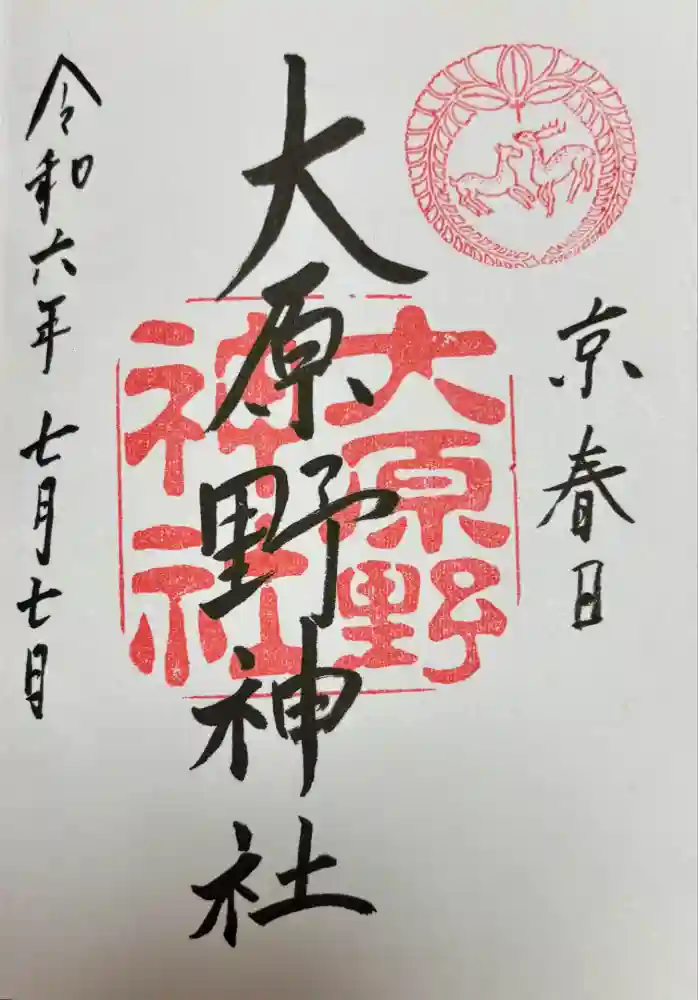 京春日
大原野神社
大原野
神社
令和六年 七月七日